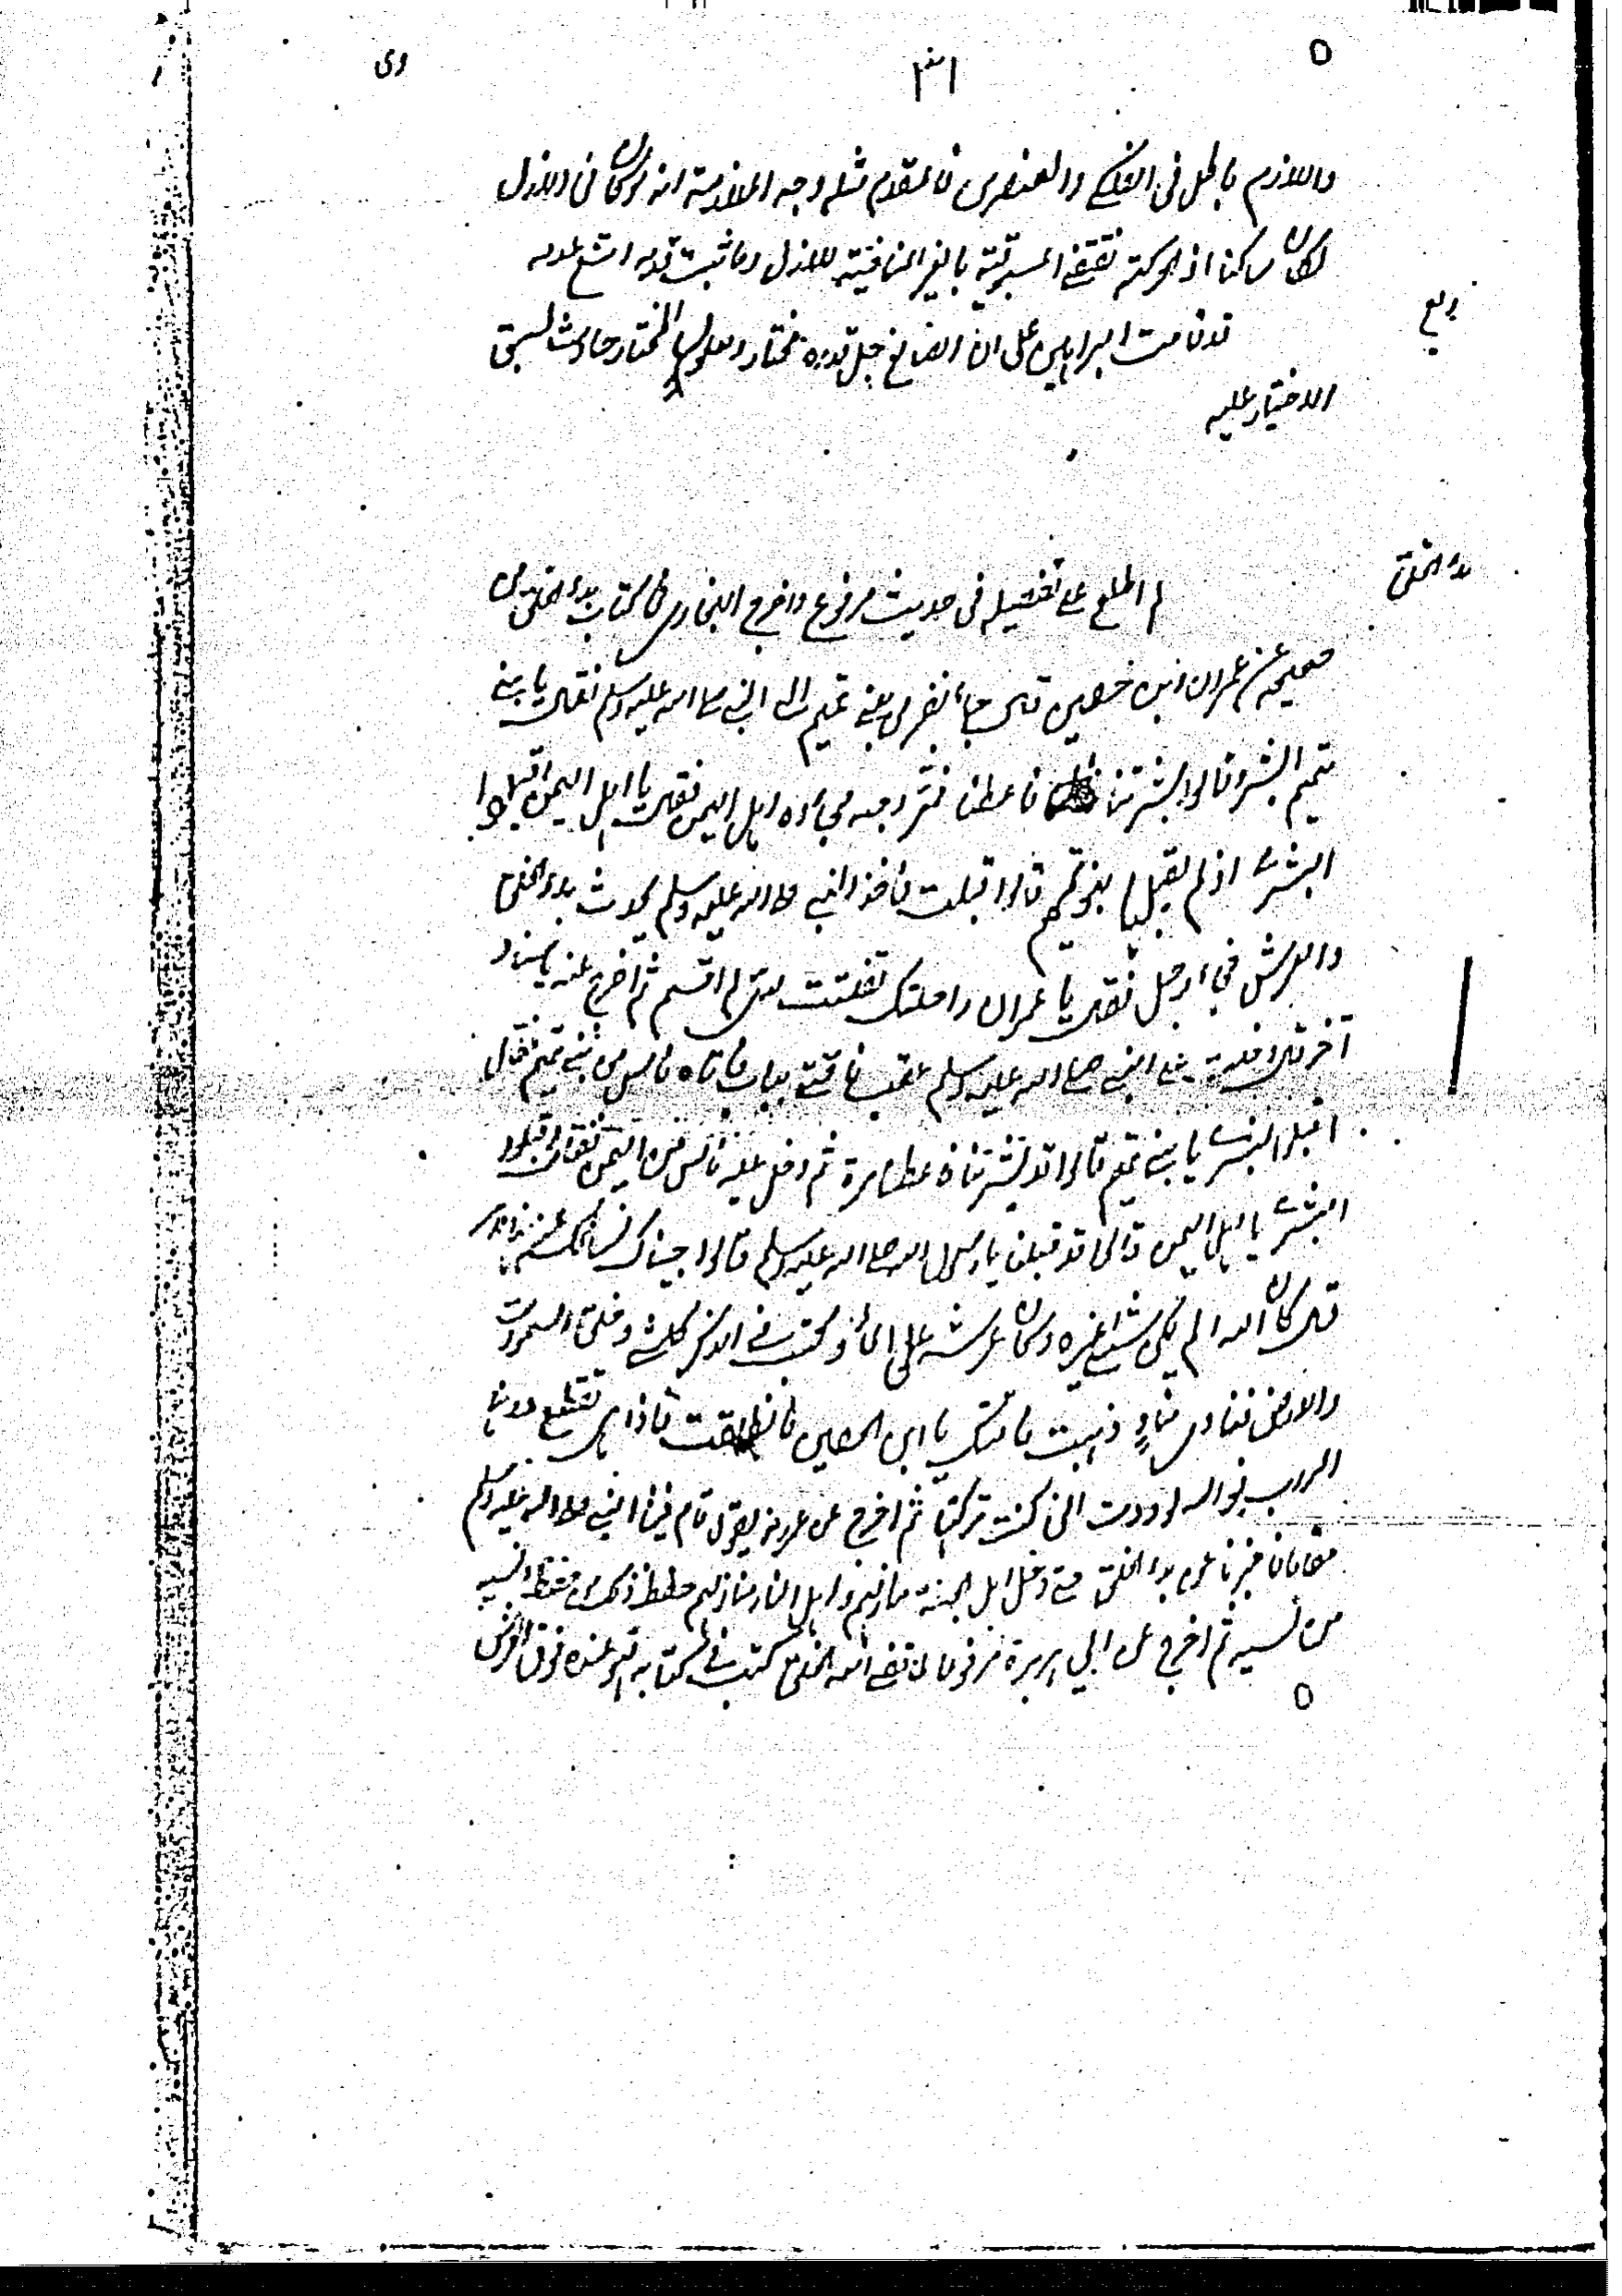 ٥
١٣
وى
واللازم باطل فى الفلكى والعنصرى فالمقدم مثله وجه الملازمة انه لو كان فى الازل
لكان ساكنا اذ الحركة تقتضى المسبوقية بالغير المنافية للازل وما ثبت قدمه امتنع عدمه
رابع
قد قامت البراهين على ان الصانع جل مختار ومعلول المختار حادث لسبق
الاختيار عليه
بدء الخلق
لم اطلع على تفصيله فى حديث مرفوع واخرج البخارى فى كتاب بدء الخلق من
صحيحه عن عمران ابن حصين قال جاء نفر من بنى تميم الى النبى صلى الله عليه وسلم فقال يا بنى
تميم ابشروا قالوا بشرتنا فاعطنا فتغير وجهه فجاءه اهل اليمن فقال يا اهل اليمن اقبلوا
البشرى اذ لم يقبلها بنو تميم قالوا قبلنا فاخذ النبى صلى الله عليه وسلم يحدث بدء الخلق
والعرش فجاء رجل فقال يا عمران راحلتك تفلتت ليتنى لم اقم ثم اخرج عنه باسناد
آخر قال دخلت على النبى صلى الله عليه وسلم وعقلت ناقتى بالباب فاتاه ناس من بنى تميم فقال
اقبلوا البشرى يا بنى تميم قالوا قد بشرتنا فاعطنا مرة ثم دخل عليه ناس من اليمن فقال اقبلوا
البشرى يا اهل اليمن قالوا قد قبلنا يا رسول الله صلى الله عليه وسلم قالوا جئناك نسألك عن هذا الامر
قال كان الله و لم يكن شئ غيره وكان عرشه على الماء وكتب فى الذكر كل شئ وخلق السموات
والارض فنادى منادٍ ذهبت ناقتك يا ابن الحصين فانطلقت فاذا هى تقطع دونها
السراب فوالله لوددت انى كنت تركتها ثم اخرج عن عمر يقول قام فينا النبى صلى الله عليه وسلم
مقاما فاخبرنا عن بدء الخلق حتى دخل اهل الجنة منازلهم واهل النار منازلهم حفظ ذلك من حفظه ونسيه
من نسيه ثم اخرج عن ابى هريرة مرفوعا لما قضى الله الخلق كتب فى كتابه فهو عنده فوق العرش
٥